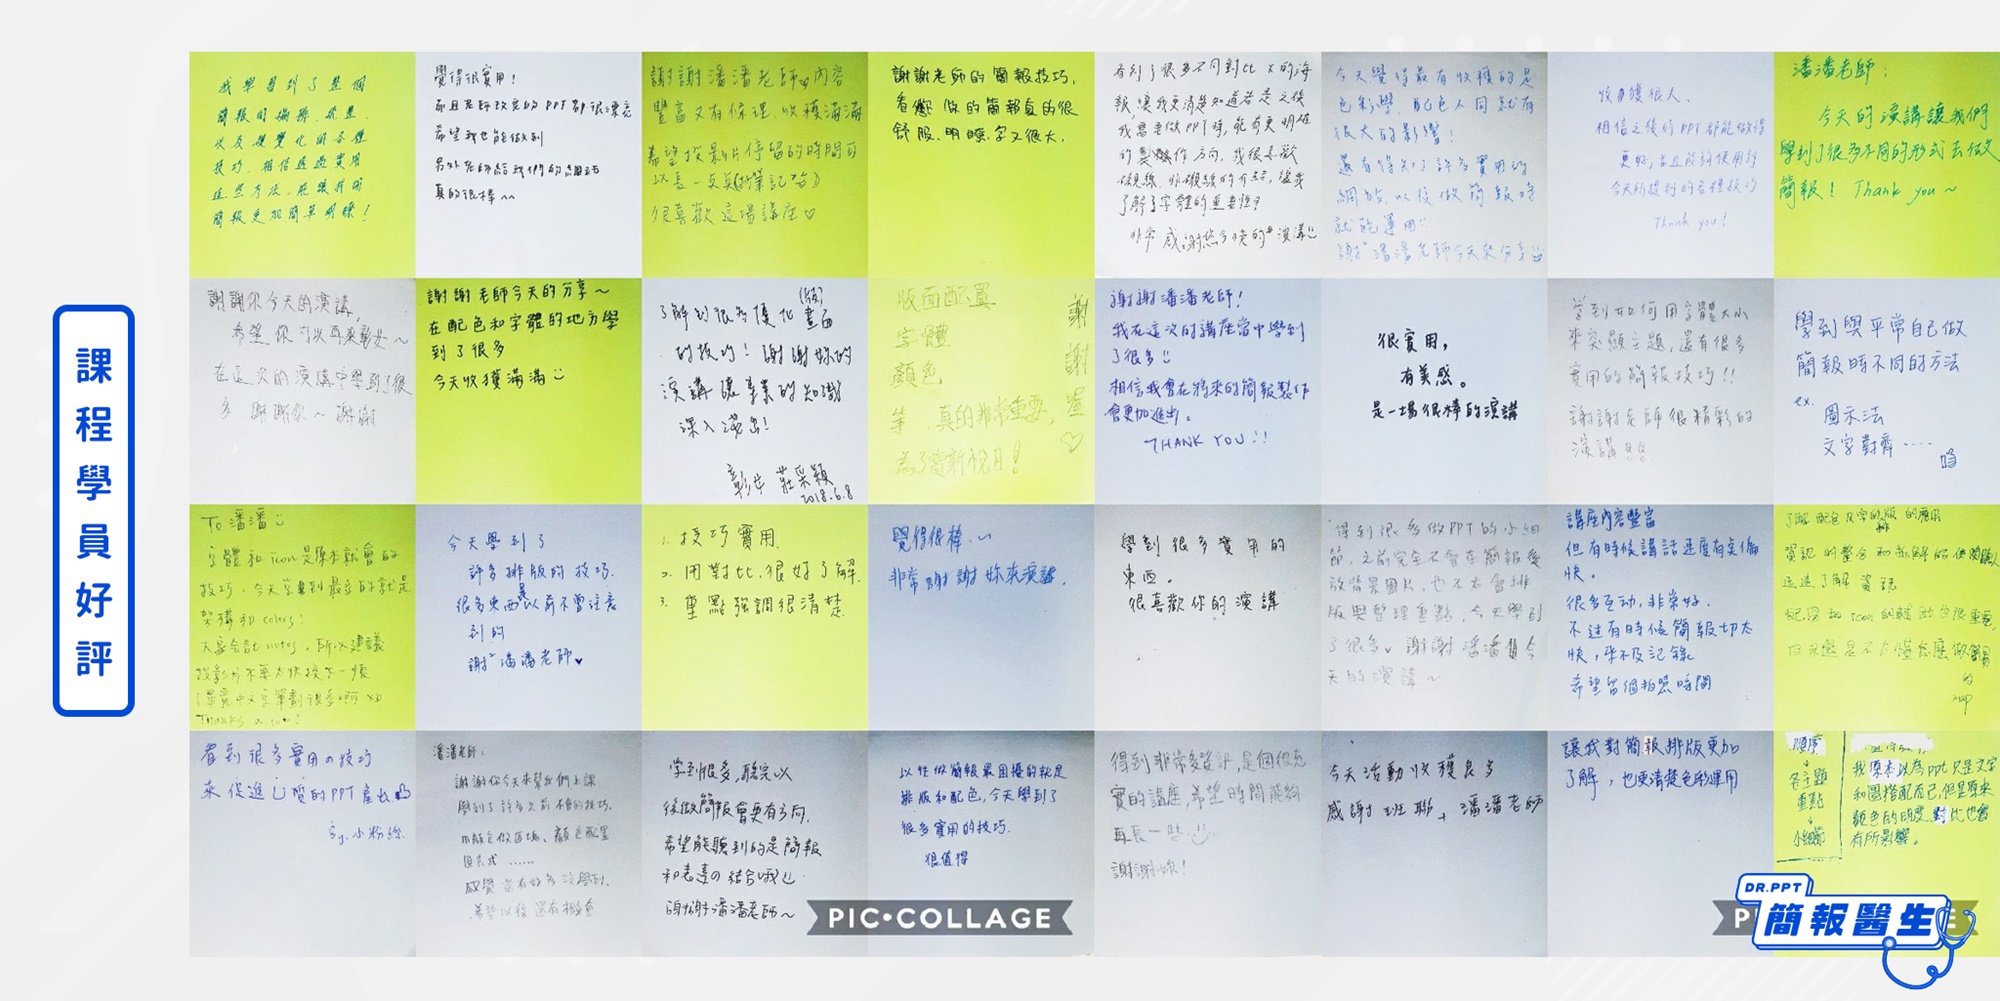 課程學員好評
我學習到了整個
簡報的編排、流程
以及視覺化的各種
技巧，相信透過實用
這些方法，能讓我的
簡報更加簡單明瞭！
覺得很實用！
而且老師改完的PPT都很漂亮
希望我也能做到
另外老師給我們的網站
真的很棒~~
謝謝潘潘老師♥內容
豐富又有條理，收穫滿滿
希望投影片停留的時間可
以長一點點
很喜歡這場講座♡
謝謝老師的簡報技巧，
看您做的簡報真的很
舒服，明瞭，字又很大，
看到了很多不同對比
報，讓我更清楚知道若是之後
我需要做PPT時，能有更明確
的製作方向，我很喜歡
襯線、非襯線的介紹，讓我
了解了字體的重要性？
非常感謝您今晚的演講
今天覺得最有收穫的是
色彩學，配色不同就有
很大的影響！
還有得知了許多實用的
網站，以後做簡報時
就能運用！
謝"潘潘老師今天來分享
收穫很大、
相信之後的PPT都能做得
更好，並且能夠使用到
今天所提到的各種技巧
Thank you！
潘潘老師：
今天的演講讓我們
學到了很多不同的形式去做
簡報！ Thank you ~
謝謝你今天的演講，
希望你可以再來彰女~
在這次的演講中學到了很
多 謝謝你~ 謝謝
謝謝老師今天的分享~
在配色和字體的地方學
到了很多
今天收獲滿滿
了解到很多優化(版)畫面
的技巧！謝謝妳的
演講讓專業的知識
深入淺出！
彰女 莊采穎
2018.6.8
版面配置
字體
顏色
等，真的非常重要，
謝謝您♡
謝謝潘潘老師！
我在這次的講座當中學到
了很多！！
相信我會在將來的簡報製作
會更加進步。
THANK YOU！！
很實用，
有美感。
是一場很棒的演講
學到如何用字體大小
來突顯主題，還有很多
實用的簡報技巧！！
謝謝老師很精彩的
演講
學到與平常自己做
簡報時不同的方法
ex.
圖示法
文字對齊‥‥
To 潘潘
字體和icon是原本就會的
技巧，今天學到最多的就是
架構和colors！
大家會抄notes，所以建議
投影片不要太快換下一張
(畢竟中文字筆劃很多啊XD
Thanks a lot！
今天學到了
許多排版的技巧，
很多東西是以前不曾注意
到的
謝"潘潘老師♥
1. 技巧實用
2. 用對比，很好了解.
3. 重點強調很清楚
覺得很棒~
非常謝謝妳來演講，
學到很多實用的
東西。
很喜歡你的演講
得到很多做PPT的小細
節，之前完全不會在簡報後
放背景圖片，也不太會排
版與整理重點，今天學到
了很多，謝謝潘潘今
天的演講~
講座內容豐富
但有時候講話速度有點偏
快。
很多互動，非常好.
不過有時候簡報切太
快，來不及記錄
希望留個拍照時間
了解配色及字的排版的應用
資訊的整合和新解能使閱聽人
迅速了解資訊
配圖和icon的輔助也很重要，
看到很多實用の技巧
來促進優質的PPT產出
By. 小粉絲
潘潘老師：
謝謝你今天來幫我們上課
學到了許多之前不會的技巧，
用顏色做區塊、顏色配置
圖表式 ……
感覺還有好多沒學到，
希望以後還有機會
學到很多，聽完以
後做簡報會更有方向，
希望能聽到的是簡報
和表達の結合哦
謝謝潘潘老師~
以往做簡報最困擾的就是
排版和配色，今天學到了
很多實用的技巧.
很值得
得到非常多資訊，是個很充
實的講座，希望時間能夠
再長一些
謝謝妳！
今天活動收穫良多
感謝班聯+潘潘老師
讓我對簡報排版更加
了解，也更清楚色彩運用
順序
↓
各主題
重點
↓
小細節
我原本以為ppt只是文字
和圖搭配而已，但是原來
顏色的明度，對比也會
有所影響。
PIC•COLLAGE
DR.PPT
簡報醫生